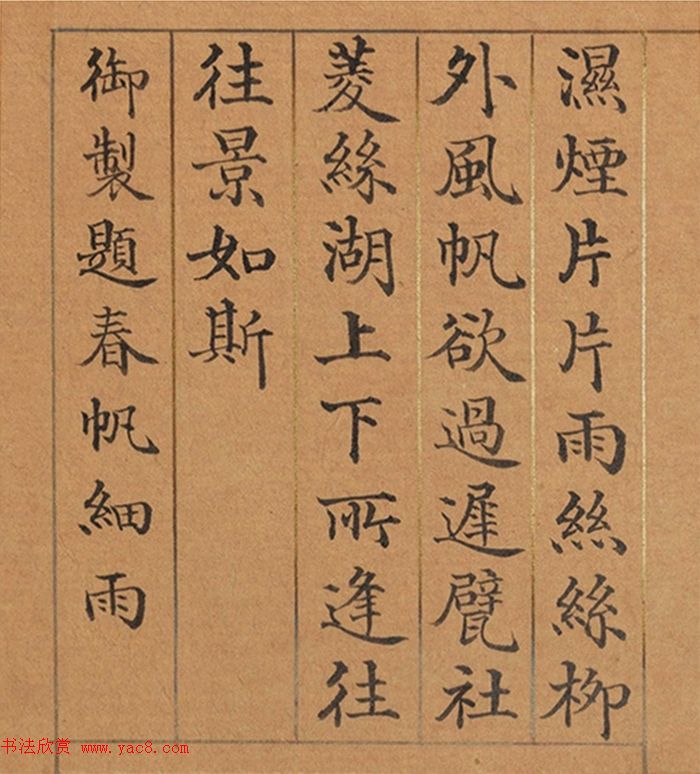 濕煙片片雨絲絲柳
外風帆欲過遲甓社
菱絲湖上下所逢往
往景如斯
御製題春帆細雨
书法欣赏 www.yac8.com